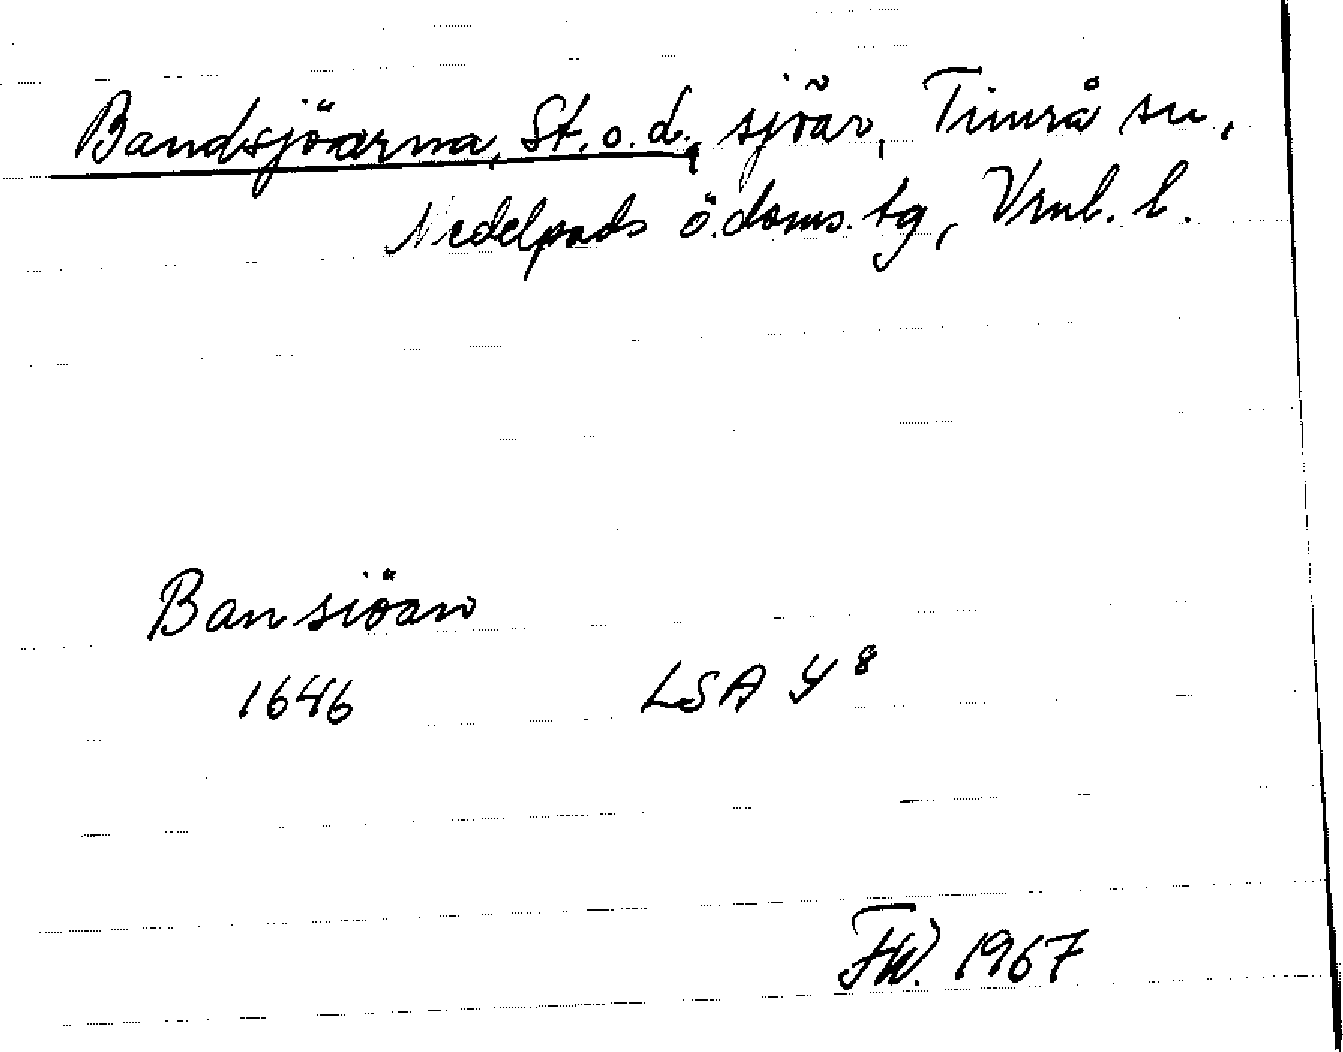 Bandsjöarna, St. o. L., sjöar, Timrå sn,
Medelpads ö. doms. tg, Vrnl. l.
Bansiöar
1646 LSA Y 8
FW. 1967